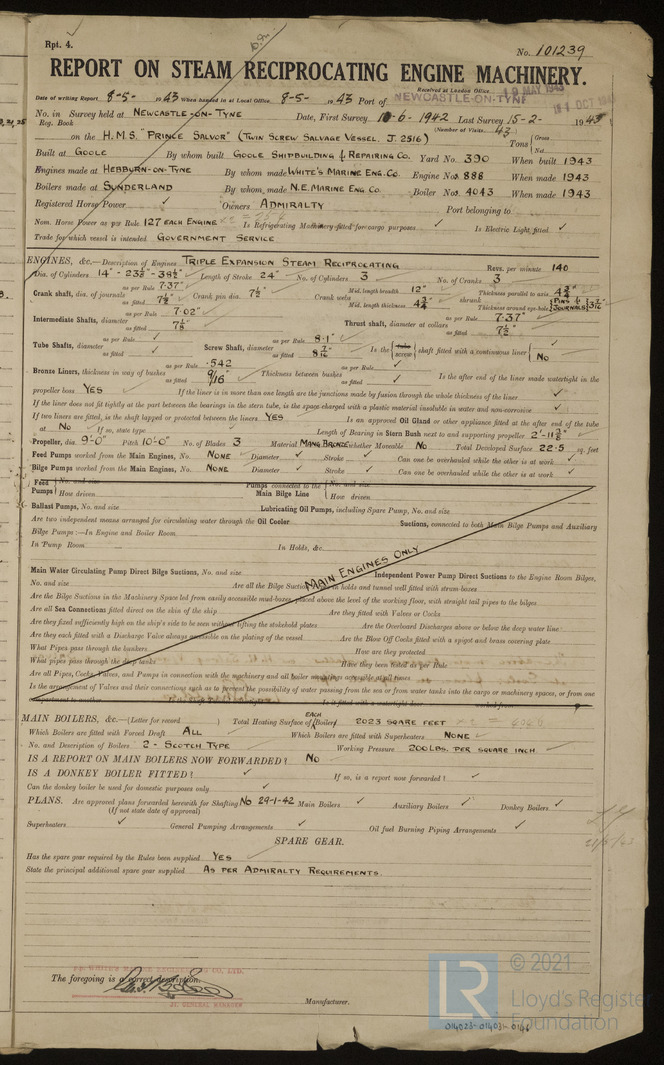 Rpt. 4.
No. 101239
REPORT ON STEAM RECIPROCATING ENGINE MACHINERY.
Received at London Office 19 MAY 1943
Date of writing Report 8-5- 1943 When handed in at Local Office 8-5- 1943 Port of NEWCASTLE-ON-TYNE
No. in Survey held at NEWCASTLE-ON-TYNE Date, First Survey 10-6-1942 Last Survey 15-2- 1943
Reg. Book (Number of Visits 43)
on the H.M.S. "PRINCE SALVOR" (TWIN SCREW SALVAGE VESSEL. J. 2516) Tons { Gross Net
Built at GOOLE By whom built GOOLE SHIPBUILDING & REPAIRING CO. Yard No. 390 When built 1943
Engines made at HEBBURN-ON-TYNE By whom made WHITE'S MARINE ENG. CO. Engine Nos. 888 When made 1943
Boilers made at SUNDERLAND By whom made N.E. MARINE ENG CO. Boiler Nos. 4043 When made 1943
Registered Horse Power ✓ Owners ADMIRALTY Port belonging to
Nom. Horse Power as per Rule 127 EACH ENGINE Is Refrigerating Machinery fitted for cargo purposes ✓ Is Electric Light fitted ✓
Trade for which vessel is intended GOVERNMENT SERVICE
ENGINES, &c.—Description of Engines TRIPLE EXPANSION STEAM RECIPROCATING Revs. per minute 140
Dia. of Cylinders 14" - 23½" - 38½" Length of Stroke 24" No. of Cylinders 3 No. of Cranks 3
Crank shaft, dia. of journals as per Rule 7·37" as fitted 7½" Crank pin dia. 7½" Crank webs Mid. length breadth 12" Mid. length thickness 4¾" shrunk Thickness parallel to axis 4¾" Thickness around eye-hole PINS & JOURNALS
Intermediate Shafts, diameter as per Rule 7·02" as fitted 7⅛" Thrust shaft, diameter at collars as per Rule 7·37" as fitted 7½"
Tube Shafts, diameter as per Rule ✓ as fitted ✓ Screw Shaft, diameter as per Rule 8·1" as fitted Is the { tube screw } shaft fitted with a continuous liner { No
Bronze Liners, thickness in way of bushes as per Rule ·542 as fitted 9/16" Thickness between bushes as per Rule ✓ as fitted ✓ Is the after end of the liner made watertight in the
propeller boss YES If the liner is in more than one length are the junctions made by fusion through the whole thickness of the liner ✓
If the liner does not fit tightly at the part between the bearings in the stern tube, is the space charged with a plastic material insoluble in water and non-corrosive ✓
If two liners are fitted, is the shaft lapped or protected between the liners YES Is an approved Oil Gland or other appliance fitted at the after end of the tube
at No If so, state type Length of Bearing in Stern Bush next to and supporting propeller
Propeller, dia 9'-0" Pitch 10'-0" No. of Blades 3 Material MANG BRONZE whether Moveable No Total Developed Surface 22·5 sq. feet
Feed Pumps worked from the Main Engines, No. NONE Diameter ✓ Stroke ✓ Can one be overhauled while the other is at work ✓
Bilge Pumps worked from the Main Engines, No. NONE Diameter ✓ Stroke ✓ Can one be overhauled while the other is at work ✓
Feed Pumps { No. and size How driven Pumps connected to the Main Bilge Line { No. and size How driven
Ballast Pumps, No. and size Lubricating Oil Pumps, including Spare Pump, No. and size
Are two independent means arranged for circulating water through the Oil Cooler Suctions, connected to both Main Bilge Pumps and Auxiliary
Bilge Pumps:—In Engine and Boiler Room
In Pump Room In Holds, &c.
MAIN ENGINES ONLY
Main Water Circulating Pump Direct Bilge Suctions, No. and size Independent Power Pump Direct Suctions to the Engine Room Bilges,
No. and size Are all the Bilge Suction pipes in holds and tunnel well fitted with strum-boxes
Are the Bilge Suctions in the Machinery Space led from easily accessible mud-boxes, placed above the level of the working floor, with straight tail pipes to the bilges
Are all Sea Connections fitted direct on the skin of the ship Are they fitted with Valves or Cocks
Are they fixed sufficiently high on the ship's side to be seen without lifting the stokehold plates Are the Overboard Discharges above or below the deep water line
Are they each fitted with a Discharge Valve always accessible on the plating of the vessel Are the Blow Off Cocks fitted with a spigot and brass covering plate
What Pipes pass through the bunkers How are they protected
What pipes pass through the deep tanks Have they been tested as per Rule
Are all Pipes, Cocks, Valves, and Pumps in connection with the machinery and all boiler mountings accessible at all times
Is the arrangement of Valves and their connections such as to prevent the possibility of water passing from the sea or from water tanks into the cargo or machinery spaces, or from one
MAIN BOILERS, &c.—(Letter for record ) Total Heating Surface of EACH Boiler 2023 SQARE FEET
Which Boilers are fitted with Forced Draft ALL Which Boilers are fitted with Superheaters NONE
No. and Description of Boilers 2 - SCOTCH TYPE Working Pressure 200 LBS. PER SQUARE INCH.
IS A REPORT ON MAIN BOILERS NOW FORWARDED? NO
IS A DONKEY BOILER FITTED? ✓ If so, is a report now forwarded? ✓
Can the donkey boiler be used for domestic purposes only ✓
PLANS. Are approved plans forwarded herewith for Shafting No 29-1-42 Main Boilers ✓ Auxiliary Boilers ✓ Donkey Boilers ✓
(If not state date of approval)
Superheaters ✓ General Pumping Arrangements ✓ Oil fuel Burning Piping Arrangements ✓
SPARE GEAR.
Has the spare gear required by the Rules been supplied YES
State the principal additional spare gear supplied AS PER ADMIRALTY REQUIREMENTS.
The foregoing is a correct description.
Manufacturer.
© 2021
LR
Lloyd's Register
Foundation
014023-014031-0146